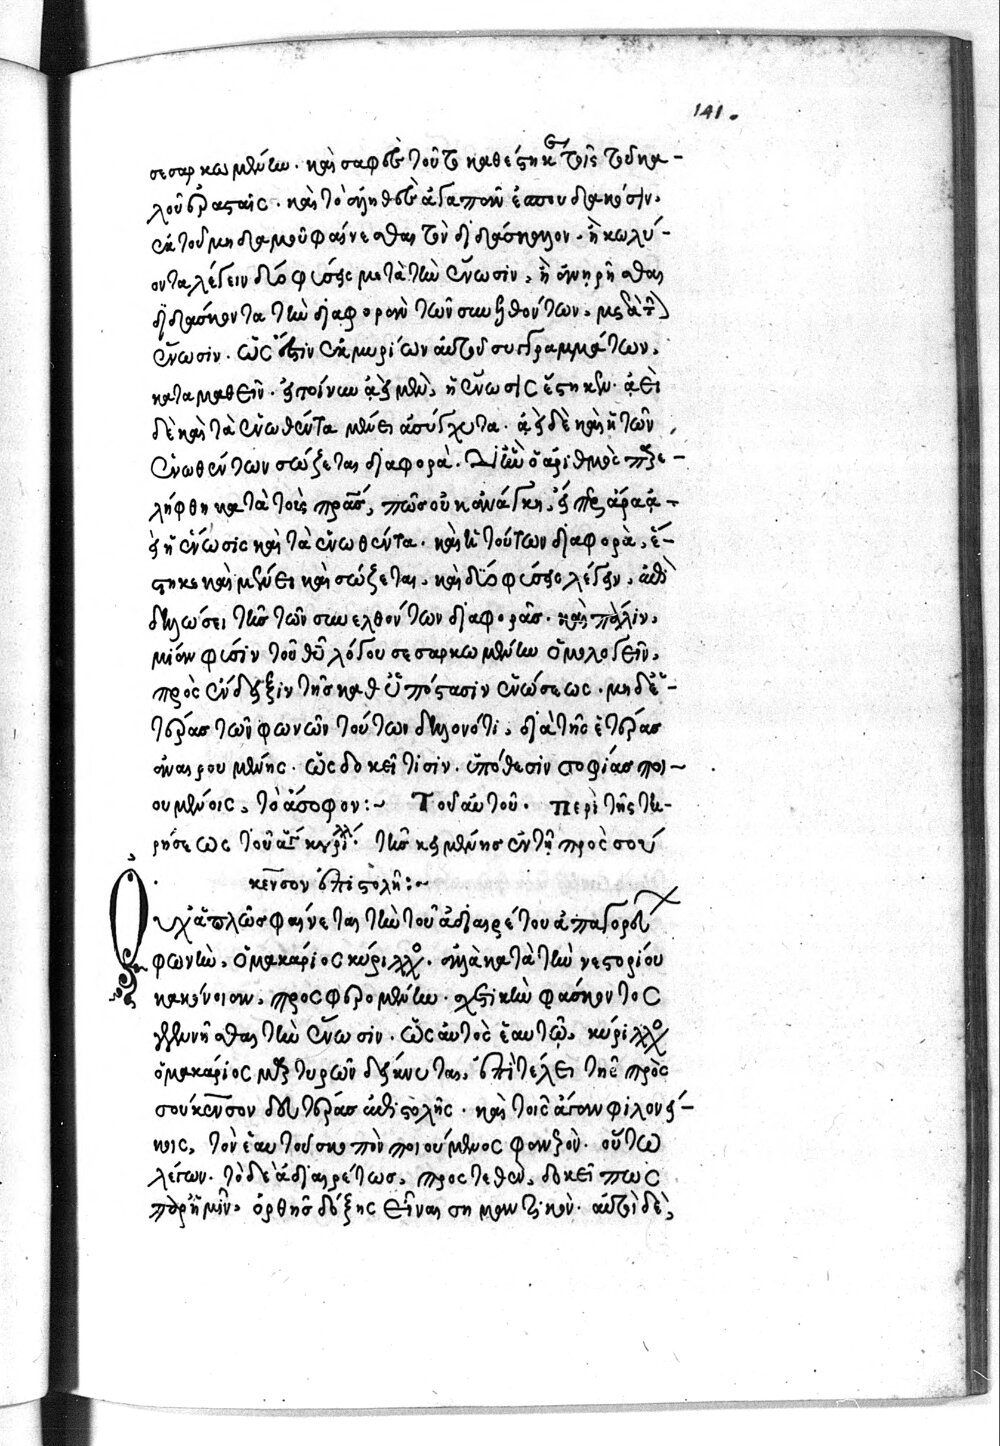 141.
σεσαρκωμένην. καὶ σαφὲς τοῦτο καθέστηκε τοῖς τὸ κα-
λοῦ ἐρασταῖς. καὶ τὸ σύνηθες ἀγαπᾶν
ἐκ τοῦ μὴ φαίνεσθαι τὸν διδάσκαλον. ἢ κωλύ-
οντα λέγειν δύο φύσεις μετὰ τὴν ἕνωσιν, ἢ ἀναιρῆσθαι
διδάσκοντα τὴν διαφορὰν τῶν συνελθόντων, μετὰ τὴν
ἕνωσιν. ὡς ἔστιν ἐκ μυρίων αὐτοῦ συγγραμμάτων,
καταμαθεῖν. εἰ τοίνυν ἀεὶ μὲν, ἡ ἕνωσις ἕστηκεν. ἀεὶ
δὲ καὶ τὰ ἑνωθέντα μένει ἀσύγχυτα. ἀεὶ δὲ καὶ ἡ τῶν
ἑνωθέντων σώζεται διαφορά. δι' ἣν ὁ ἀριθμὸς παρε-
λήφθη κατὰ τοὺς πατέρας, πῶς οὐκ ἀνάγκη,
ἡ ἕνωσις καὶ τὰ ἑνωθέντα. καὶ ἡ τούτων διαφορὰ, ἕ-
στηκε καὶ μένει καὶ σώζεται, καὶ δύο φύσεις λέγειν, ἐπὶ
δηλώσει τῆς τῶν συνελθόντων διαφορᾶς. καὶ πάλιν,
μίαν φύσιν τοῦ θεοῦ λόγου σεσαρκωμένην ὁμολογεῖν,
πρὸς ἔνδειξιν τῆς καθ' ὑπόστασιν ἑνώσεως. μηδε-
τέρας τῶν φωνῶν τούτων δηλονότι, διὰ τῆς ἑτέρας
ἀναιρουμένης. ὡς δοκεῖ τισιν. ὑπόθεσιν σοφίας ποι-
ουμένοις, τὸ ἄσοφον:~ Τοῦ αὐτοῦ. περὶ τῆς τη-
ρήσεως τοῦ ἁγίου κυρίλλου. τῆς κειμένης ἐν τῇ πρὸς σού
κενσον ἐπιστολῇ:~
Οὐχ ἁπλῶς φαίνεται τὴν τοῦ ἀδιαιρέτου ἀπαγορεύ
φωνὴν, ὁ μακάριος κύριλλος. ἀλλὰ κατὰ τὴν νεστορίου
κακόνοιαν, προσφερομένην. σχετικὴν φάσκοντος
γεγενῆσθαι τὴν ἕνωσιν. ὡς αὐτὸς ἑαυτῷ, κύριλλος
ὁ μακάριος μαρτυρῶν δείκνυται, ἐπὶ τέλει τῆς πρὸς
σούκενσον δευτέρας ἐπιστολῆς. καὶ τοῖς ἄγαν φιλονεί-
κοις, τὸν ἑαυτοῦ σκοπὸν ποιούμενος φανερόν. οὕτω
λέγων. τὸ δὲ ἀδιαιρέτως, προστεθὲν, δοκεῖ πως
παρ' ἡμῖν, ὀρθῆς δόξης εἶναι σημαντικόν. αὐτοὶ δὲ,